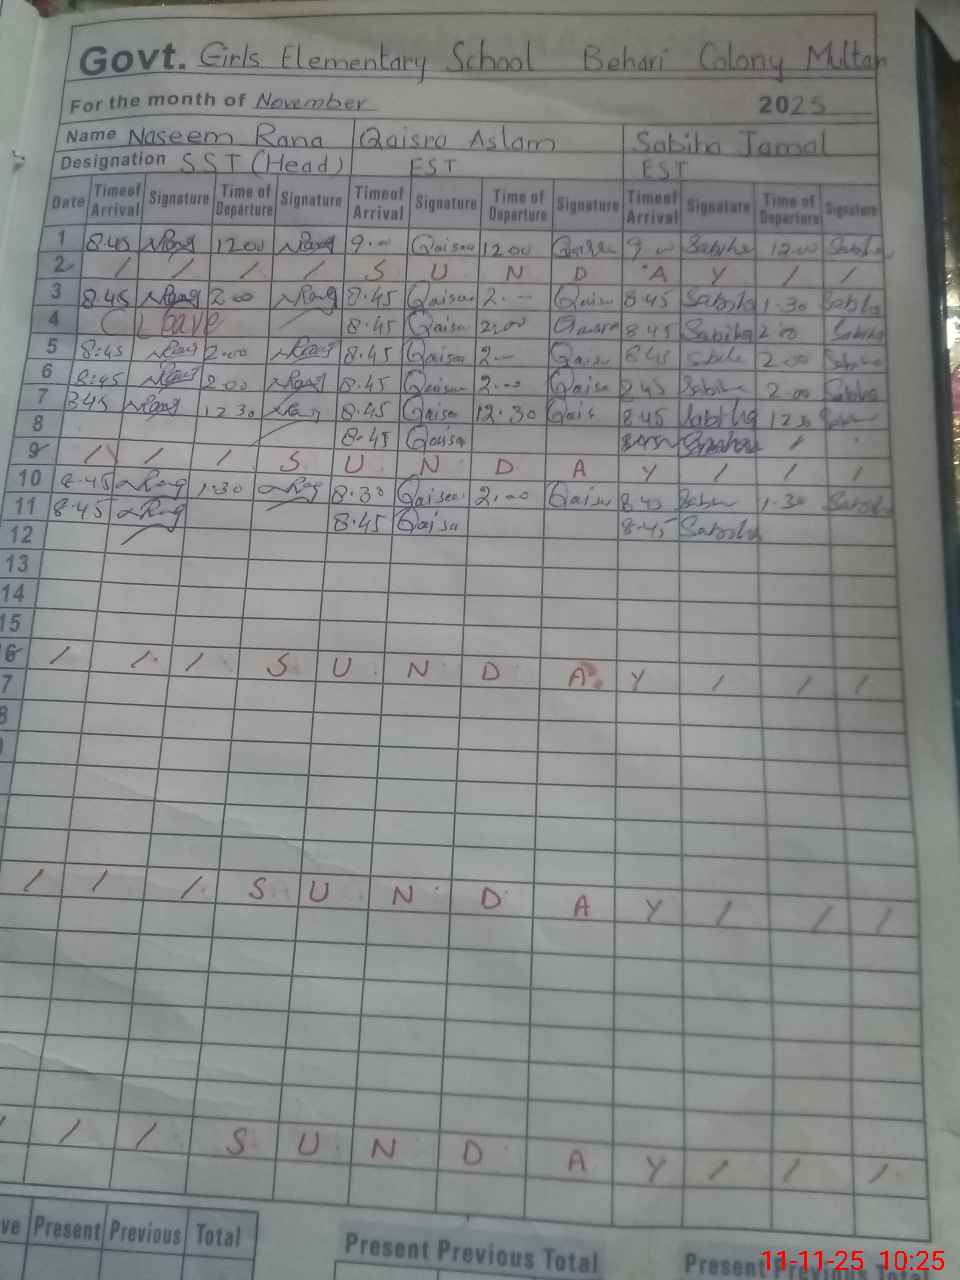 Govt. Girls Elementary School Behari Colony Multan
For the month of November 2025
Name Naseem Rana Qaisra Aslam Sabiha Jamal
Designation SST (Head) EST EST
Date Timeof Arrival Signature Time of Departure Signature Timeof Arrival Signature Time of Departure Signature Timeof Arrival Signature Time of Departure Signature
1 8.45 Rang 12 00 Rang 9.00 Qaisra 12 00 Qaisra 9 00 Sabiha 12.00 Sabiha
2 / / / / S U N D A Y / /
3 8.45 Rang 2.00 Rang 8.45 Qaisra 2.00 Qaisra 8 45 Sabiha 1.30 Sabiha
4 C Leave 8.45 Qaisra 2.00 Qaisra 8 45 Sabiha 2 00 Sabiha
5 8:45 Rang 2.00 Rang 8.45 Qaisra 2.00 Qaisra 8 45 Sabiha 2.00 Sabiha
6 8:45 Rang 2 00 Rang 8.45 Qaisra 2.00 Qaisra 8 45 Sabiha 2.00 Sabiha
7 8 45 Rang 12 30 Rang 8.45 Qaisra 12.30 Qaisra 8.45 Sabiha 12 30
8 8.45 Qaisra /
9 / / / S U N D A Y / / /
10 8.45 Rang 1.30 Rang 8.30 Qaisra 2.00 Qaisra 8.45 1.30 Sabiha
11 8.45 Rang 8.45 Qaisra 8.45 Sabiha
12
13
14
15
6 / / / S U N D A Y / / /
7
8
/ / / S U N D A Y / / /
/ / / S U N D A Y / / /
ve Present Previous Total Present Previous Total Present Previous To
11-11-25 10:25